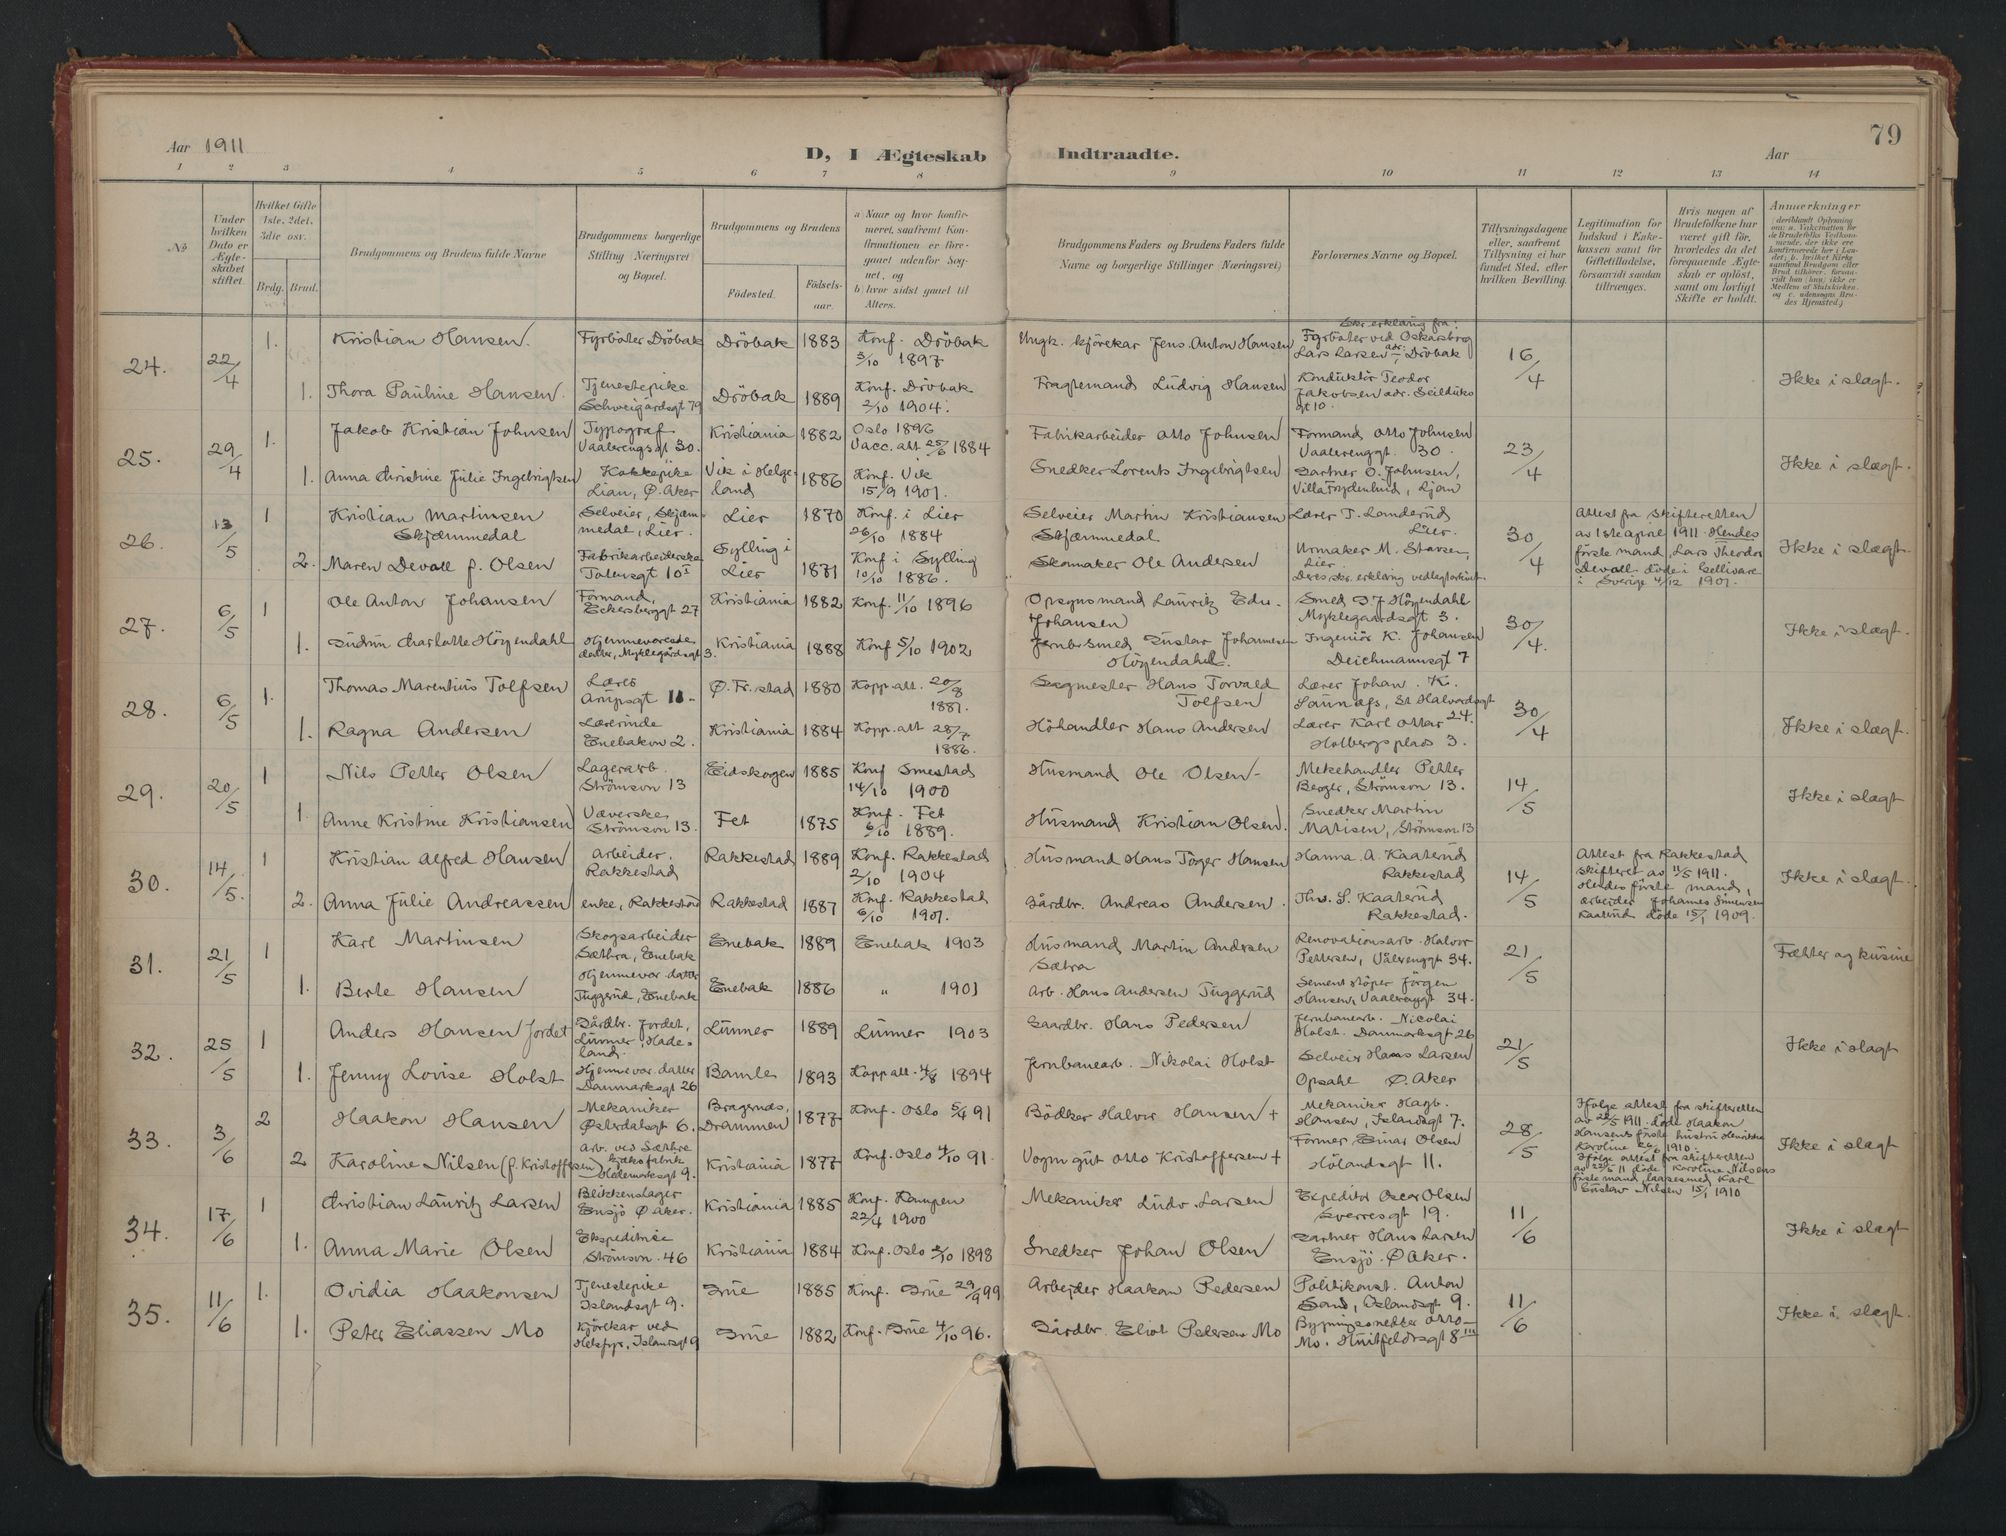 79
Aar 1911
D, I Ægteskab Indtraadte.
Aar
1 2 3 4 5 6 7 8 9 10 11 12 13 14
No
Under hvilken Dato er Ægteskabet stiftet
Hvilket Gifte 1ste, 2det, 3die osv.
Brdg. Brud.
Brudgommens og Brudens fulde Navne
Brudgommens borgerlige Stilling (Næringsvei) og Bopæl.
Brudgommens og Brudens
Fødested.
Fødselsaar.
a) Naar og hvor konfirmeret, samt fremt Konfirmationen er foregaaet udenfor Sognet, og
b) hvor sidst gaaet til Alters.
Brudgommens Faders og Brudens Faders fulde Navne og borgerlige Stillinger (Næringsvei)
Forlovernes Navne og Bopæl.
Tillysningsdagene eller, saafremt Tillysning ei har fundet Sted, efter hvilken Bevilling.
Legitimation for Indskud i Enkekassen samt for Giftetilladelse, forsaavidt saadan tiltrænges.
Hvis nogen af Brudefolkene har været gift før, hvorledes da det foregaaende Ægteskab er opløst, samt om lovligt Skifte er holdt.
Anmærkninger
24. 22/4 1. Kristian Hansen. Fyrbøter Dröbak Dröbak 1883 Konf. Dröbak 3/10 1897 Ungk. kjörekar Jens Anton Hansen Skr. erklæring fra: Fyrbøter ved Oskarsborg Lars Larsen adr. Dröbak 16/4 Ikke i slagt.
1. Thora Pauline Hansen. Tjenestepike Schweigårdsgt 79 Dröbak 1889 Konf. Dröbak 2/10 1904. Fragtemand Ludvig Hansen Konduktör Teodor Jakobsen adr. Seilduksgt 10.
25. 29/4 1. Jakob Kristian Johnsen Typograf Vaalerengsgt 30. Kristiania 1882 Oslo 1896 Vacc. att 25/6 1884 Fabrikarbeider Otto Johnsen Formand Otto Johnsen Vaalerenggt. 30. 23/4 Ikke i slægt.
1. Anna Christine Julie Ingebrigtsen Kokkepike Lian, Ø. Aker Vik i Helgeland 1886 Konf. Vik 15/9 1901. Snedker Lorents Ingebrigtsen Gartner O. Johnsen, Villa Frydenlund, Ljan
26. 13/5 1 Kristian Martinsen Skjæmmedal Selveier, Skjæmmedal, Lier. Lier 1870 Konf. i Lier 26/10 1884 Selveier Martin Kristiansen Skjæmmedal Lærer T. Landerud Lier. 30/4 Attest fra Skifteretten av 1ste april 1911. Hendes förste mand, Lars Theodor Devall döde i Gellivare i Sverige 4/12 1901. Ikke i slagt.
2. Maren Devall f. Olsen Fabrikarbeiderske Totensgt 10 I Sylling i Lier 1871 Konf i Sylling 10/10 1886. Skomaker Ole Andersen Urmaker M. Lier. Deres skr. erklæring
27. 6/5 1 Ole Anton Johansen Formand, Eckersberggt 27 Kristiania 1882 Konf. 11/10 1896 Opsynsmand Lauritz Edv. Johansen Smed G J Höyendahl Myklegaardsgt 3. 30/4. Ikke i slagt.
1. Gudrun Charlotte Höyendahl Hjemmeværende datter, Myklegårdsgt 3. Kristiania 1888 Konf 5/10 1902 Jernb. smed Gustav Johannesen Höyendahl. Ingeniör K. Johansen Deichmannsgt 7
28. 6/5 1. Thomas Marentius Tolfsen Lærer Arupsgt 11 Ø. Fr.stad 1880 Kopp. att. 20/8 1881. Sagmester Hans Torvald Tolfsen Lærer Johan. K. St Halvordsgt 24. 30/4 Ikke i slægt.
1. Ragna Andersen Lærerinde Enebakvn 2. Kristiania 1884 Kopp. att 28/7 1886. Höhandler Hans Andersen Lærer Karl Ottar Holbergs plads 3.
29. 20/5 1 Nils Petter Olsen Lagerarb. Strömsvn 13 Eidskogen 1885 Konf Smestad 14/10 1900 Husmand Ole Olsen Melkehandler Petter Berger, Strömsvn 13. 14/5 Ikke i slagt
1. Anne Kristine Kristiansen Væverske Strömsvn 13. Fet 1875 Konf. Fet 6/10 1889. Husmand Kristian Olsen. Snedker Martin Matisen, Strömsvn 13
30. 14/5. 1 Kristian Alfred Hansen Arbeider. Rakkestad Rakkestad 1889 Konf. Rakkestad 2/10 1904 Husmand Hans Torger Hansen Hanna A. Kaaterud Rakkestad 14/5 Attest fra Rakkestad skifteret av 11/5 1911. Hendes förste mand, arbeider Johannes Simensen Kaaterud döde 15/1 1909. Ikke i slagt.
2. Anna Julie Andreassen enke, Rakkestad Rakkestad 1887 Konf. Rakkestad 6/10 1901. Gårdbr. Andreas Andersen. Ths. S. Kaaterud Rakkestad.
31. 21/5 1 Karl Martinsen Skogsarbeider Sæthra, Enebak Enebak 1889 Enebak 1903 Husmand Martin Andersen Sætra Renovationsarb. Halvor Pettersen, Vålerenggt 34. 21/5 Fætter og kusine
1. Berte Hansen Hjemmevær. datter Tuggerud, Enebak Enebak 1886 " 1901 Arb. Hans Andersen Tuggerud Sementstöper Jörgen Hansen, Vaalerenggt 34.
32. 25/5 1 Anders Hansen Jordet Gårdbr. Jordet, Lunner, Hadeland. Lunner 1889 Lunner 1903 Gaardbr. Hans Pedersen Jernbanearb. Nicolai Holst. Danmarksgt 26 21/5 Ikke i slagt
1. Jenny Lovise Holst Hjemmevær. datter Danmarksgt 26 Bamle 1893 Kopp att. 4/8 1894 Jernbanearb. Nikolai Holst Selveier Hans Larsen Opsahl Ø. Aker
33. 3/6 2 Haakon Hansen Mekaniker Österdalsgt 6. Bragernes, Drammen 1877 Konf. Oslo 5/4 91 Bödker Halvor Hansen + Mekaniker Hagb. Hansen, Islandsgt 7. 28/5 Ifölge attest fra skifteretten av 22/5 1911 döde Haakon Hansens förste hustru Henrikke Karoline 26/6 1910. Ifölge attest fra skifteretten av 22/5 11 döde Karoline Nilsens förste mand, laasesmed Karl Gustav Nilsen 15/1 1910 Ikke i slagt
2 Karoline Nilsen (f. Kristoffersen) Arb. ved Sætre kjæksfabrik Hedemarksgt 9. Kristiania 1877 Konf. Oslo 4/10 91. Vognm gut Otto Kristoffersen + Former Einar Olsen Hölandsgt 11.
34. 17/6 1 Christian Lauritz Larsen Blikkenslager Ensjö Ø Aker. Kristiania 1885 Konf. Kampen 22/4 1900 Mekaniker Ludv. Larsen Expeditör Oscar Olsen Sverresgt 19. 11/6 Ikke i slagt
1. Anna Marie Olsen Ekspeditrise Strömsvn. 46 Kristiania 1884 Konf. Oslo 2/10 1898 Snedker Johan Olsen Gartner Hans Larsen Ensjö. Ø Aker.
35. 11/6 1. Ovidia Haakonsen Tjenestepike Islandsgt 9. Grue 1885 Konf. Grue 29/9 99 Arbeider Haakon Pedersen Politikonst. Anton Sand, Islandsgt 9. 11/6 Ikke i slægt.
1. Peter Eliassen Mo Kjörekar ved Helsfyr, Islandsgt 9 Grue 1882 Konf. Grue 4/10 96. Gårdbr. Eliot Pedersen Mo Bygningssnedker Otto Mo. Huitfeldtsgt 8 III